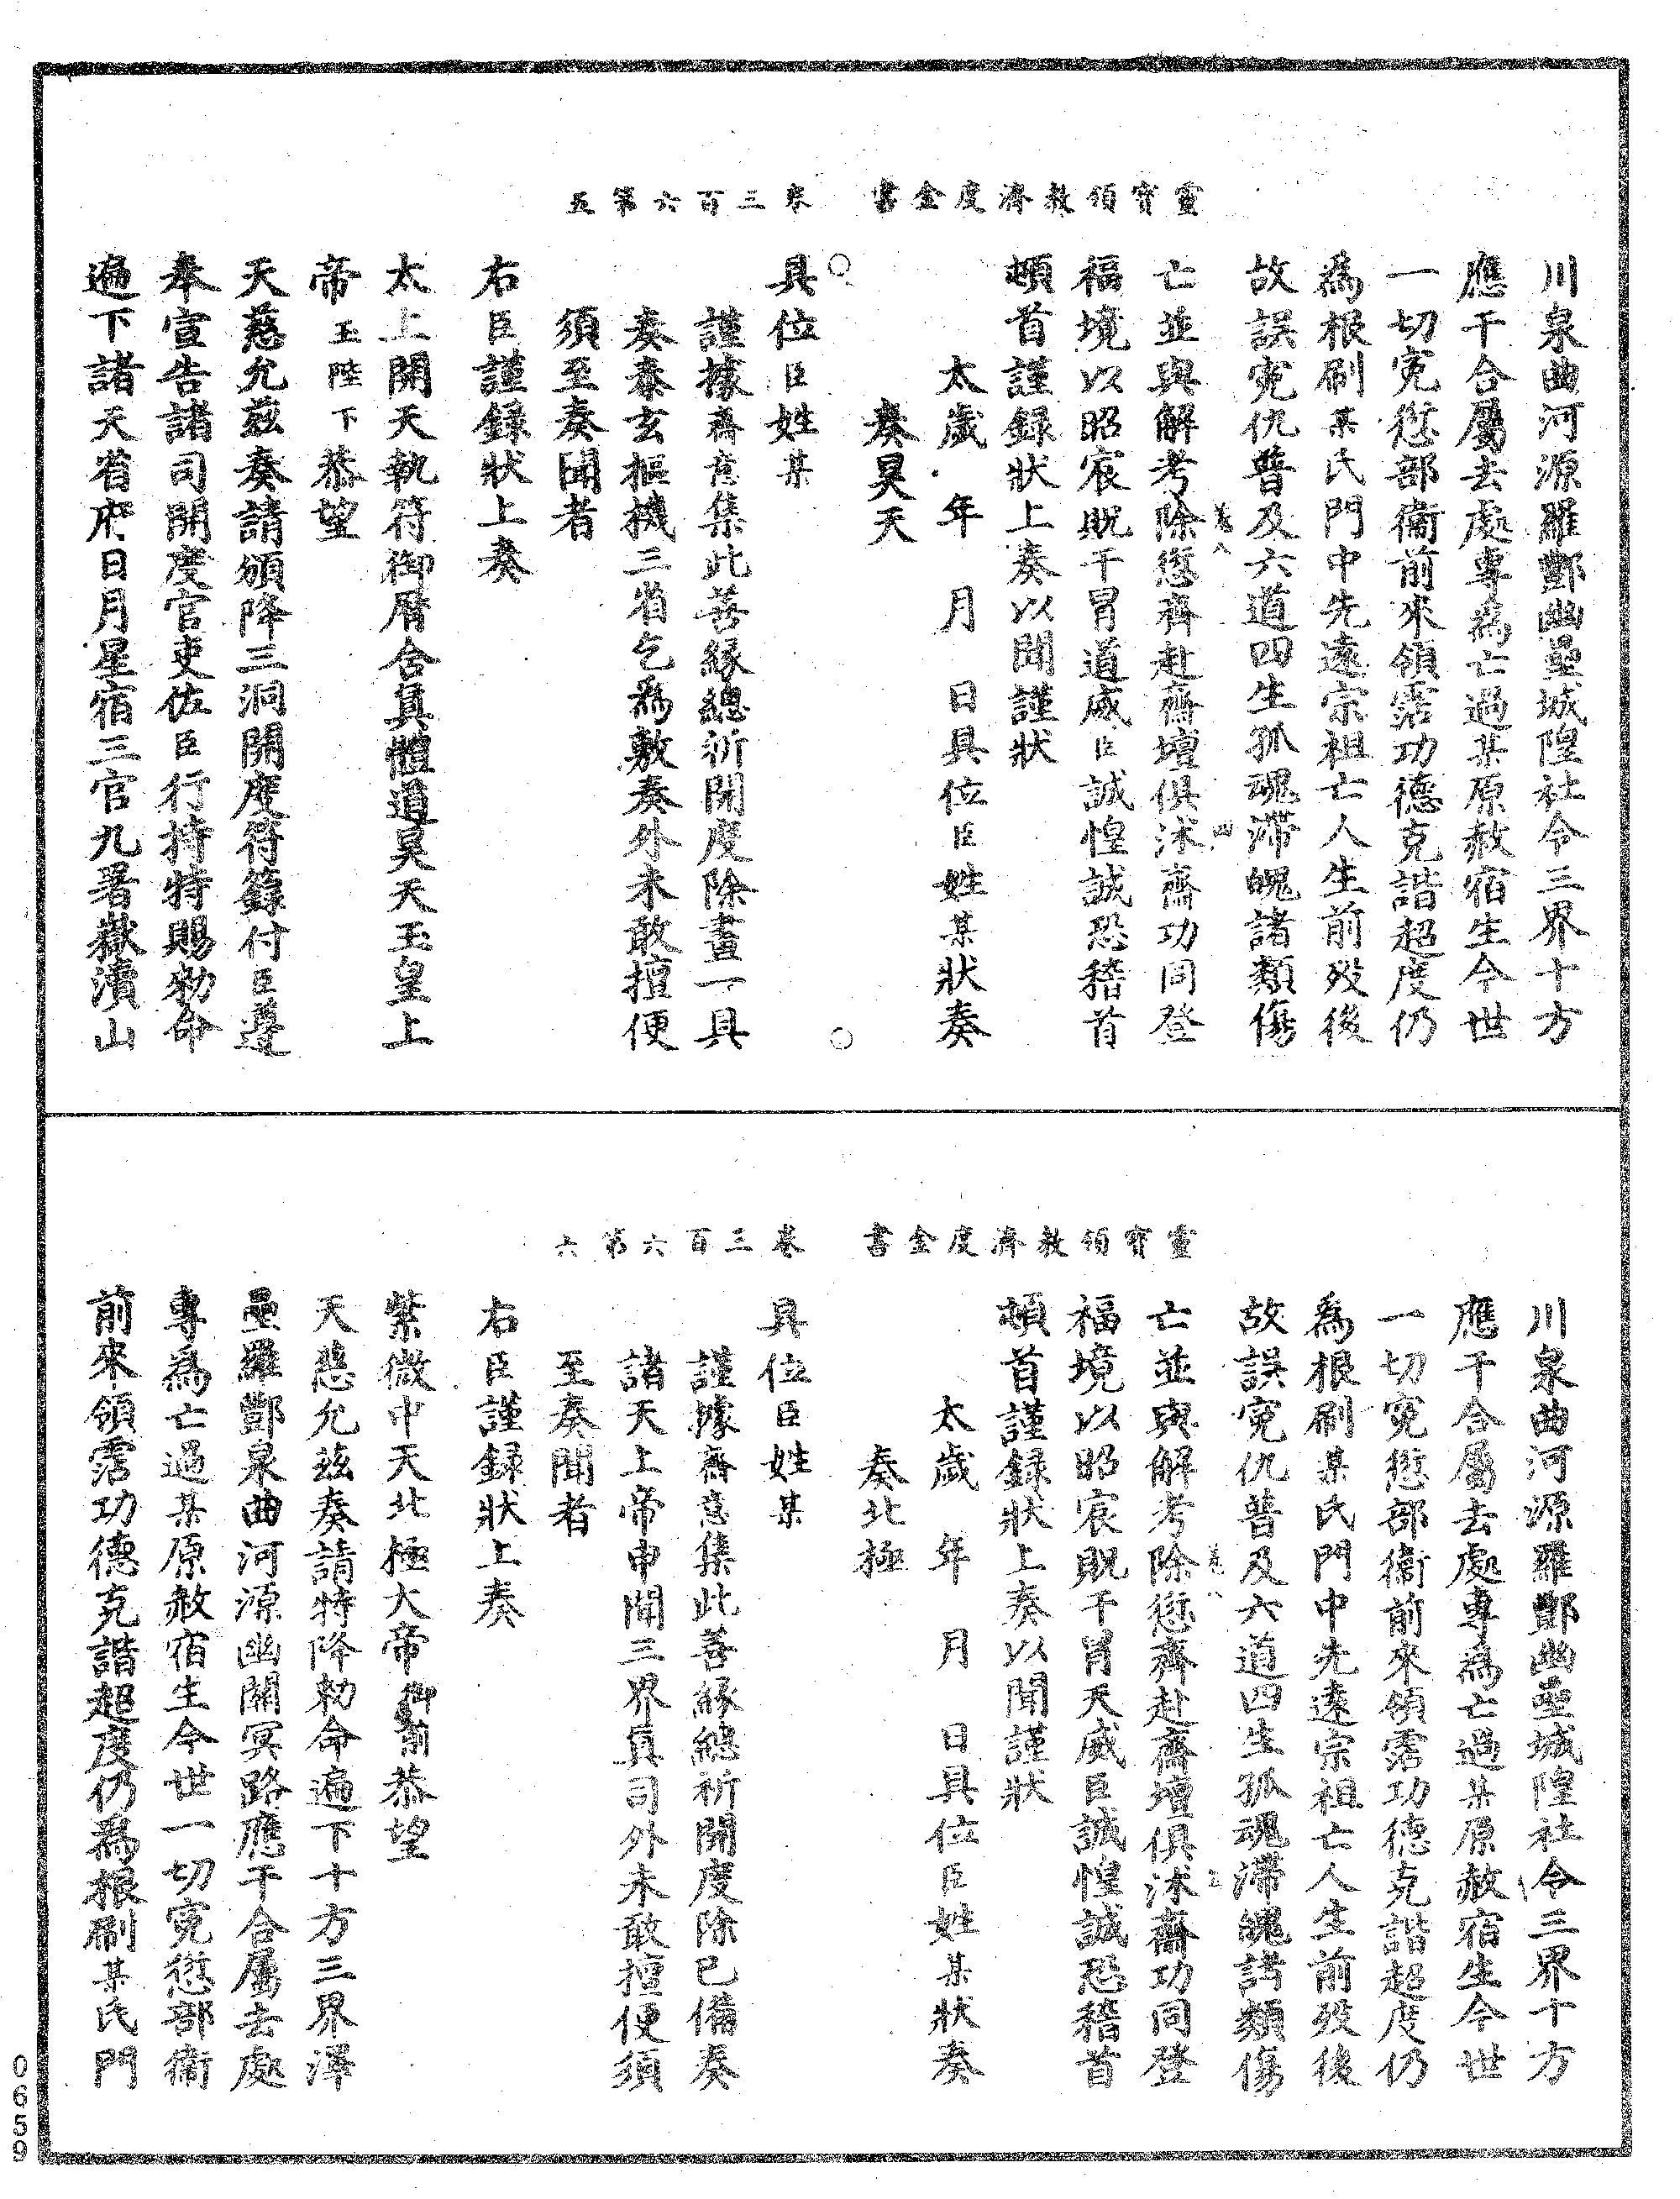 靈寶領教濟度金書　卷三百六第五
川泉曲河源羅酆幽壘城隍社令三界十方
應干合屬去處專為亡過某原赦宿生今世
一切寃愆部衞前來領霑功德克諧超度仍
為根刷某氏門中先遠宗祖亡人生前歿後
故誤寃仇普及六道四生孤魂滯魄諸類傷
亡並與解考除愆齊赴齋壇俱沭齋功同登
福境以昭宸貺干冒道威臣誠惶誠恐稽首
頓首謹録狀上奏以聞謹狀
太歲　年　月　日具位臣姓某狀奏
奏昊天
具位臣姓某
謹據齋意集此善緣總祈開度除畫一具
奏泰玄樞機三省乞為敷奏外未敢擅便
須至奏聞者
右臣謹録狀上奏
太上開天執符御曆含真體道昊天玉皇上
帝玉陛下恭望
天慈允兹奏請頒降三洞開度符籙付臣遵
奉宣告諸司開度官吏佐臣行持特賜勑命
遍下諸天省府日月星宿三官九署嶽瀆山
靈寶領教濟度金書　卷三百六第六
川泉曲河源羅酆幽壘城隍社令三界十方
應干合屬去處專為亡過某原赦宿生今世
一切寃愆部衞前來領霑功德克諧超度仍
為根刷某氏門中先遠宗祖亡人生前歿後
故誤寃仇普及六道四生孤魂滯魄諸類傷
亡並與解考除愆齊赴齋壇俱沭齋功同登
福境以昭宸貺干冒天威臣誠惶誠恐稽首
頓首謹録狀上奏以聞謹狀
太歲　年　月　日具位臣姓某狀奏
奏北極
具位臣姓某
謹據齋意集此善緣總祈開度除已備奏
諸天上帝申聞三界真司外未敢擅便須
至奏聞者
右臣謹録狀上奏
紫微中天北極大帝御前恭望
天慈允兹奏請特降勑命遍下十方三界澤
壘羅酆泉曲河源幽關冥路應干合屬去處
專為亡過某原赦宿生今世一切寃愆部衞
前來領霑功德克諧超度仍為根刷某氏門
0659